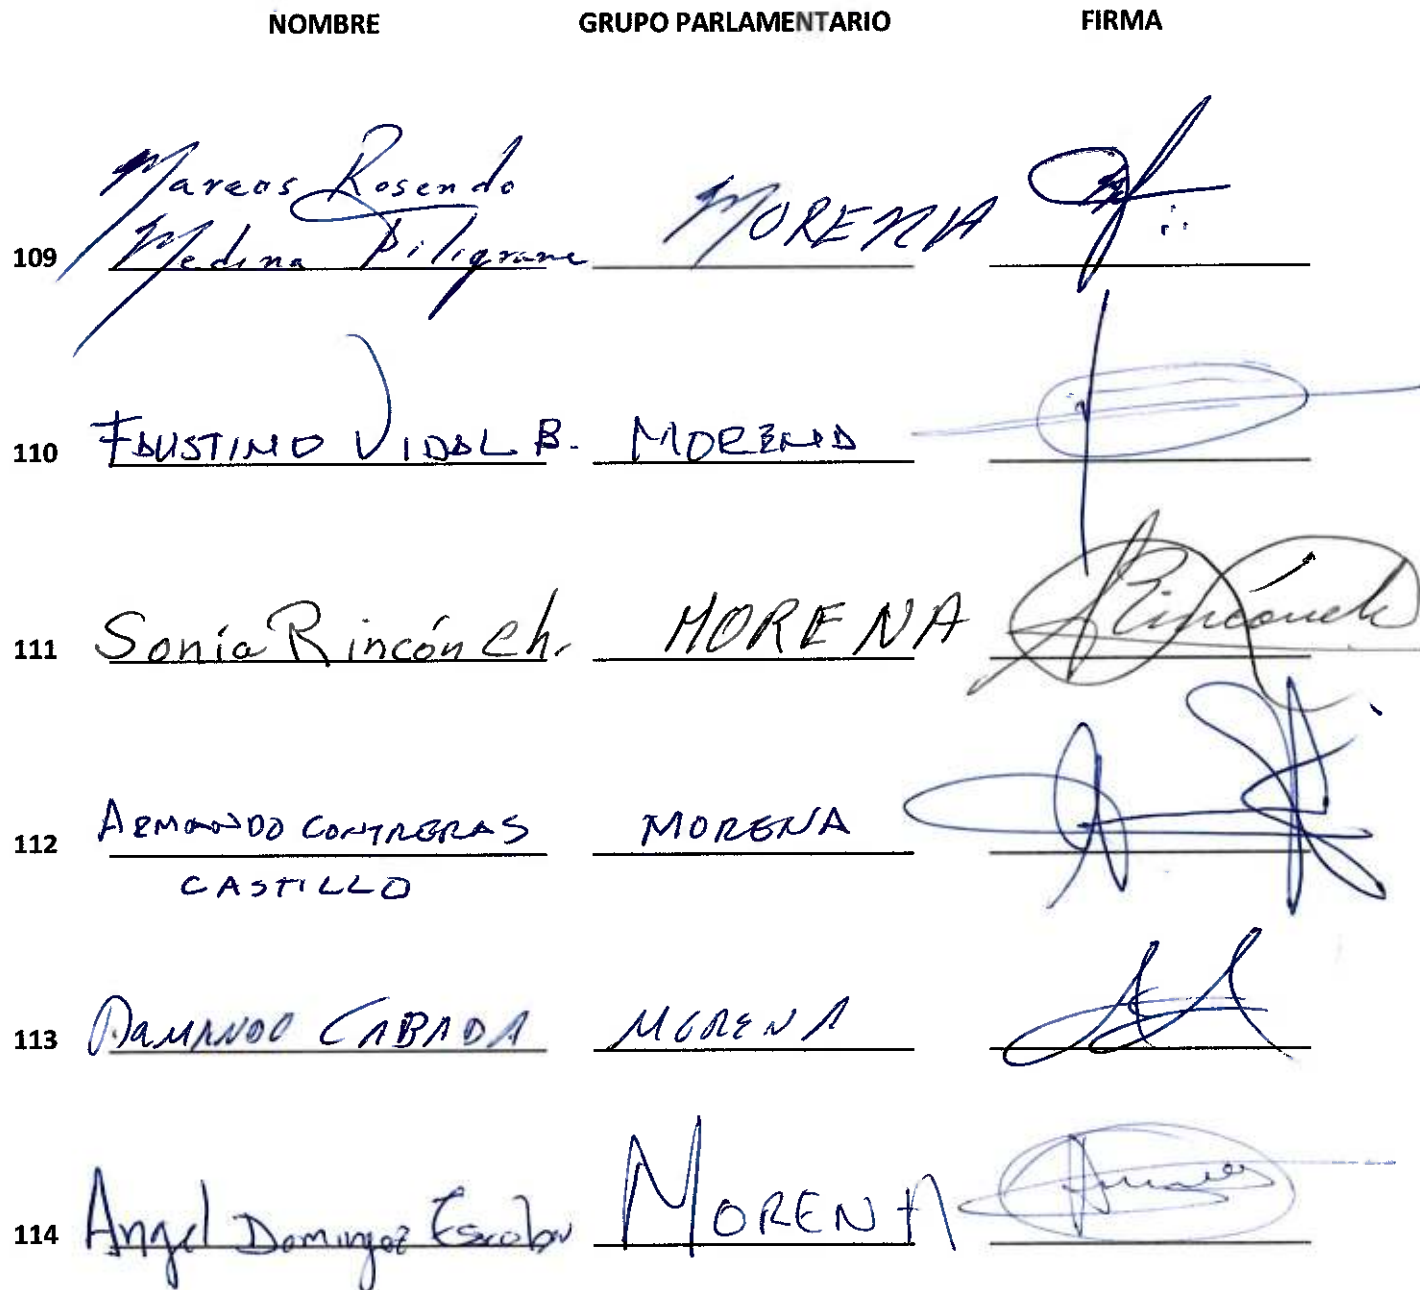 NOMBRE GRUPO PARLAMENTARIO FIRMA
Marcos Rosendo
109 Medina Filigrana MORENA
110 FAUSTINO VIDAL B. MORENA
111 Sonia Rincón Ch. MORENA Rincónch
112 ARMANDO CONTRERAS MORENA
CASTILLO
113 ARMANDO CABADA MORENA
114 Angel Dominguez Escobar MORENA